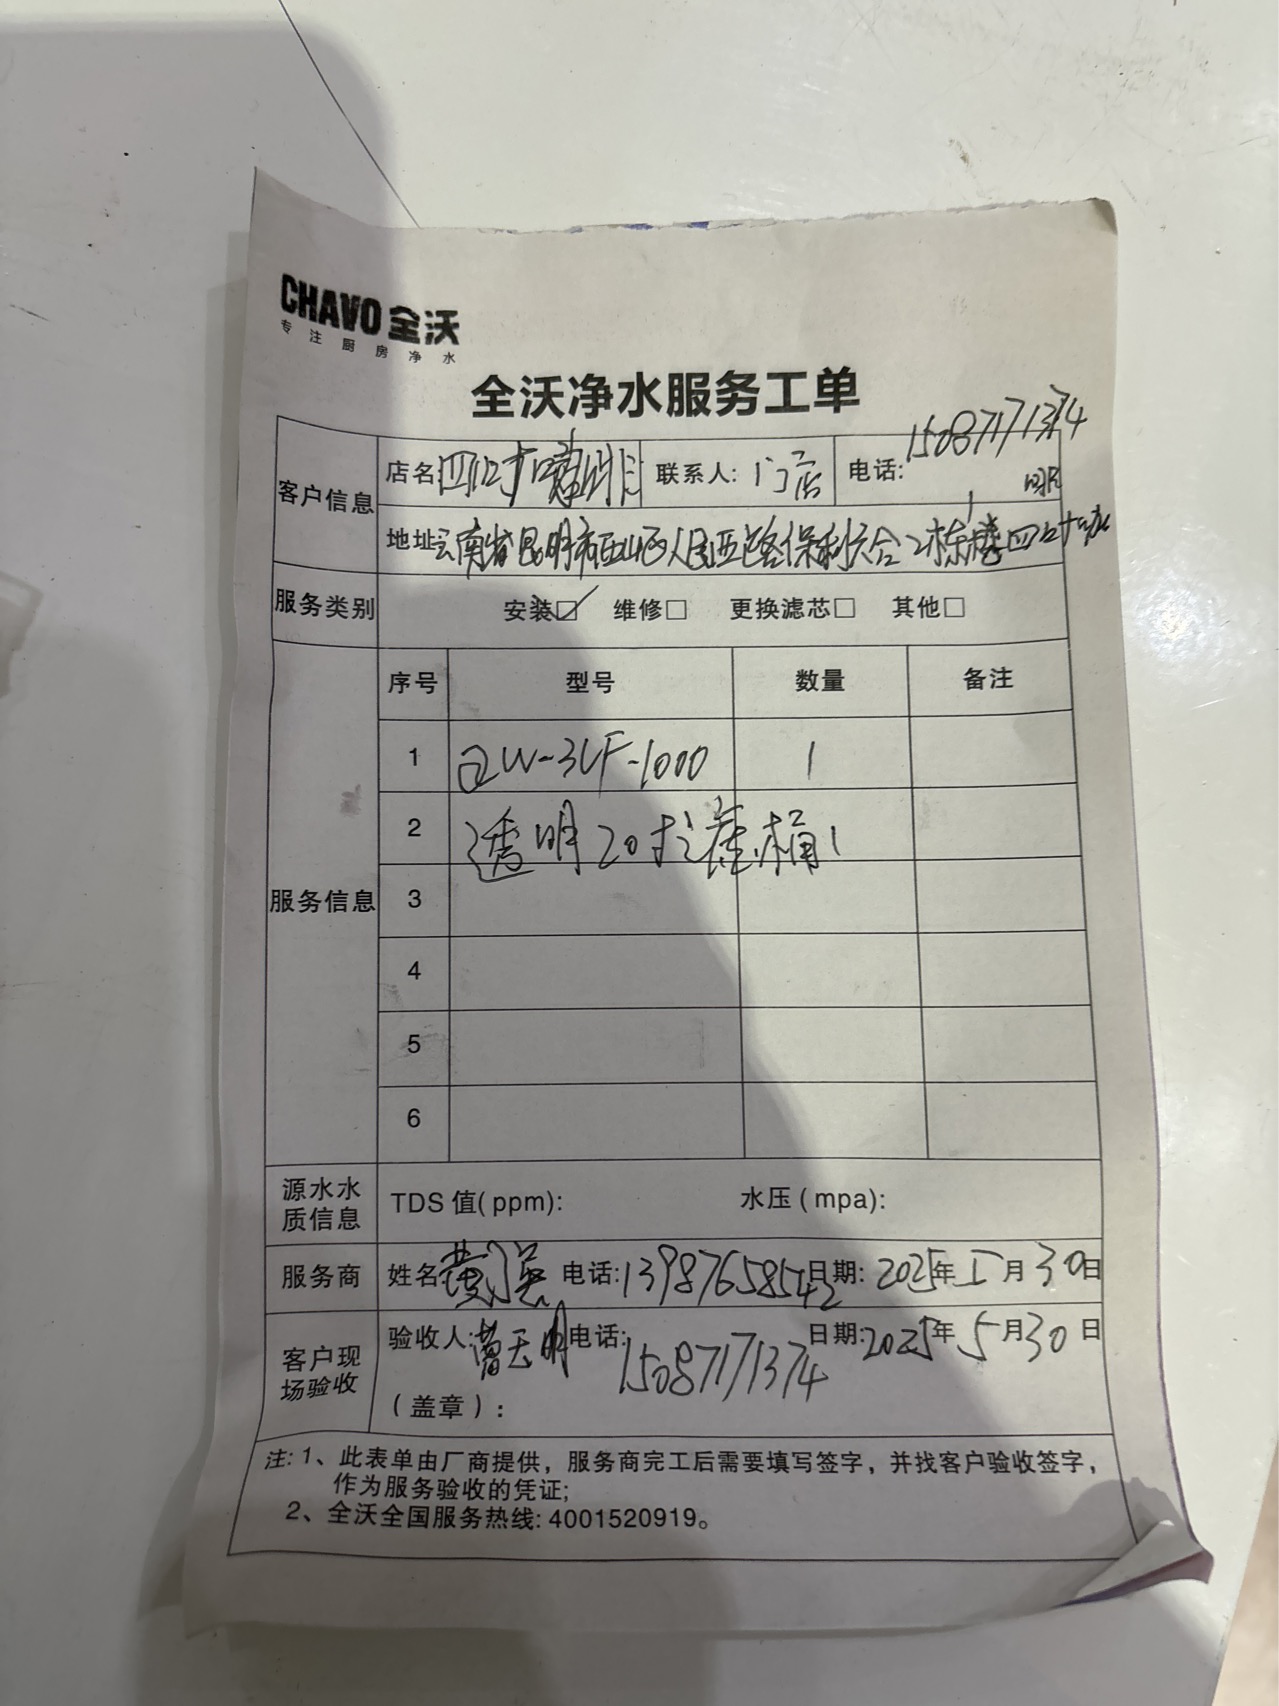 CHAVO 全沃
专注厨房净水
全沃净水服务工单
客户信息
店名: 联系人: 门店 电话: 15087171374
地址: 云南省昆明市西山区人民西路保利六合2栋
服务类别 安装☑ 维修□ 更换滤芯□ 其他□
服务信息
序号 型号 数量 备注
1 QW-3UF-1000 1
2 透明20寸滤桶 1
3
4
5
6
源水水质信息 TDS 值(ppm): 水压(mpa):
服务商 姓名: 电话:13987658542 日期: 2025年5月30日
客户现场验收 验收人: 曹天明 电话: 15087171374 日期: 2025年5月30日
(盖章):
注: 1、此表单由厂商提供，服务商完工后需要填写签字，并找客户验收签字，
作为服务验收的凭证;
2、全沃全国服务热线: 4001520919。